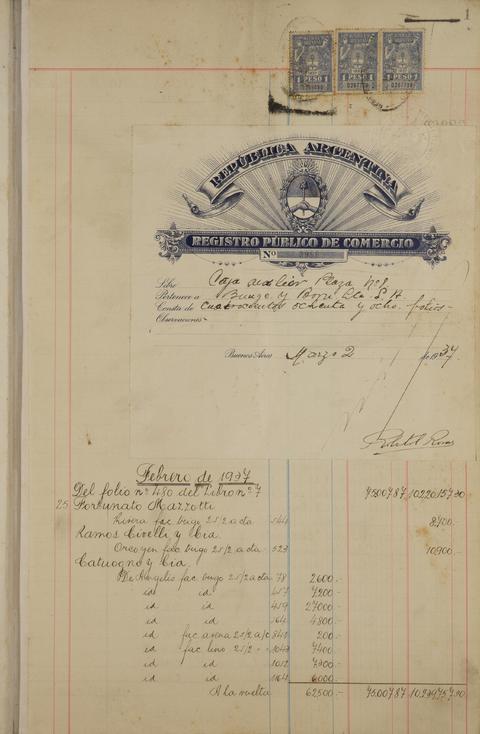 1
1 PESO 1 1 PESO 1 1 PESO 1
REPÚBLICA ARGENTINA
REGISTRO PÚBLICO DE COMERCIO
No
Libro Caja auxiliar Plaza Nº 8
Pertenece a Bunge y Born Ltda. S. A.
Consta de Cuatrocientos ochenta y ocho folios-
Observaciones-
Buenos Aires Marzo 2 de 1937
Febrero de 1937
Del folio nº 480 del Libro nº 7
25 Fortunato Mazzotti
Rivera fac. bugo 25/2 a cta 544 8400.-
Ramos Civelli y Cia.
fac. bugo 25/2 a cta. 523 10900.-
Catuogno y Cia.
De Angelis fac. bugo 25/2 a cta 78 2600.-
id id 457 7200-
id id 459 27000-
id id 4800.-
id fac. avena 25/2 a/c 200.-
id fac. lino 25/2 - 1049 7400
id id 1012 7300.-
id id 6000.-
A la vuelta 62500.-